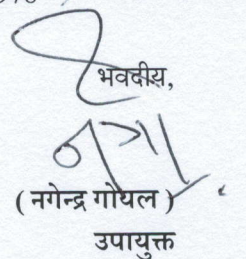 भवदीय,
( नगेन्द्र गोयल )
उपायुक्त